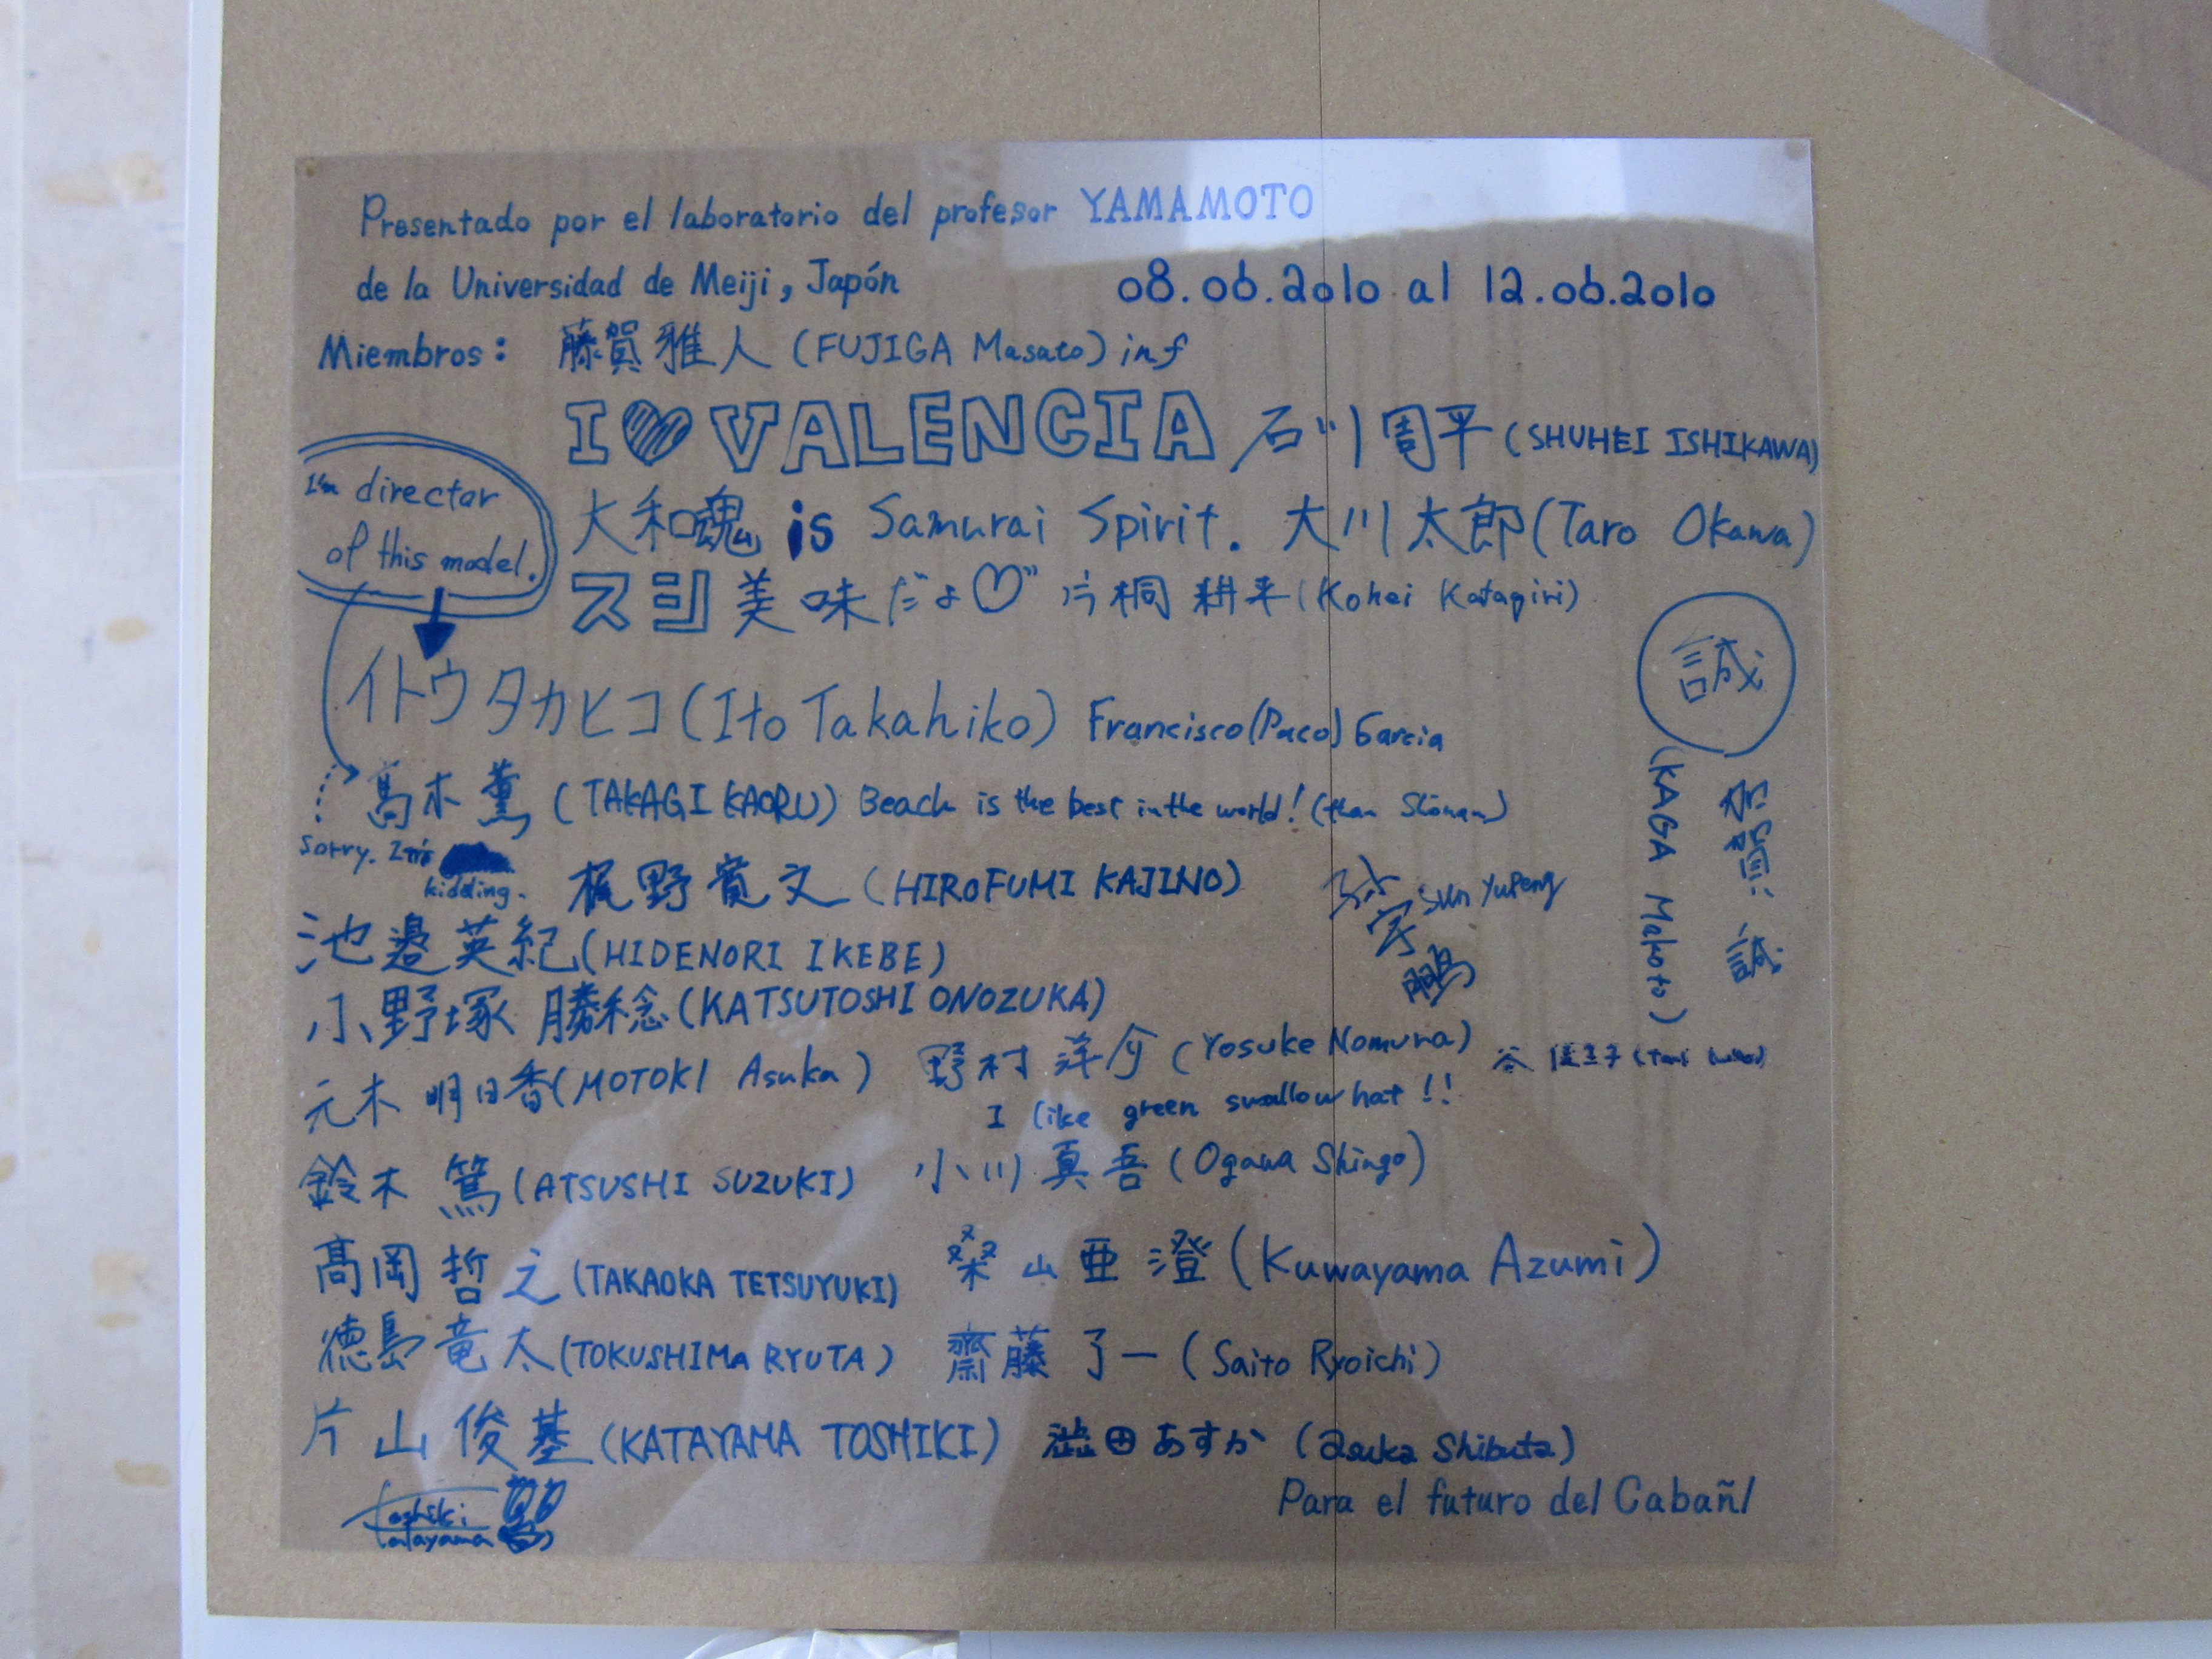 Presentado por el laboratorio del profesor YAMAMOTO
de la Universidad de Meiji, Japón 08.06.2010 al 12.06.2010
Miembros: 藤賀雅人 (FUJIGA Masato) inf
I ♥ VALENCIA 石川周平 (SHUHEI ISHIKAWA)
I'm director
of this model.
大和魂 is Samurai Spirit. 大川太郎 (Taro Okawa)
スシ美味だよ♡ 片桐耕平 (Kohei Katagiri)
誠
イトウタカヒコ (Ito Takahiko) Francisco (Paco) Garcia
高木薫 (TAKAGI KAORU) Beach is the best in the world! (than Shonan)
sorry.
kidding.
加賀誠
(KAGA Makoto)
梶野寛文 (HIROFUMI KAJINO)
孫宇鵬 Sun Yupeng
池邉英紀 (HIDENORI IKEBE)
小野塚 勝稔 (KATSUTOSHI ONOZUKA)
元木 明日香 (MOTOKI Asuka) 野村 洋介 (Yosuke Nomura)
I like green swallow hat!!
谷
鈴木 篤 (ATSUSHI SUZUKI) 小川 真吾 (Ogawa Shingo)
髙岡 哲之 (TAKAOKA TETSUYUKI) 桑山 亜澄 (Kuwayama Azumi)
徳島竜太 (TOKUSHIMA RYUTA) 齋藤 了一 (Saito Ryoichi)
片山俊基 (KATAYAMA TOSHIKI) 澁田あすか (asuka Shibuta)
toshiki
katayama
Para el futuro del Cabañl